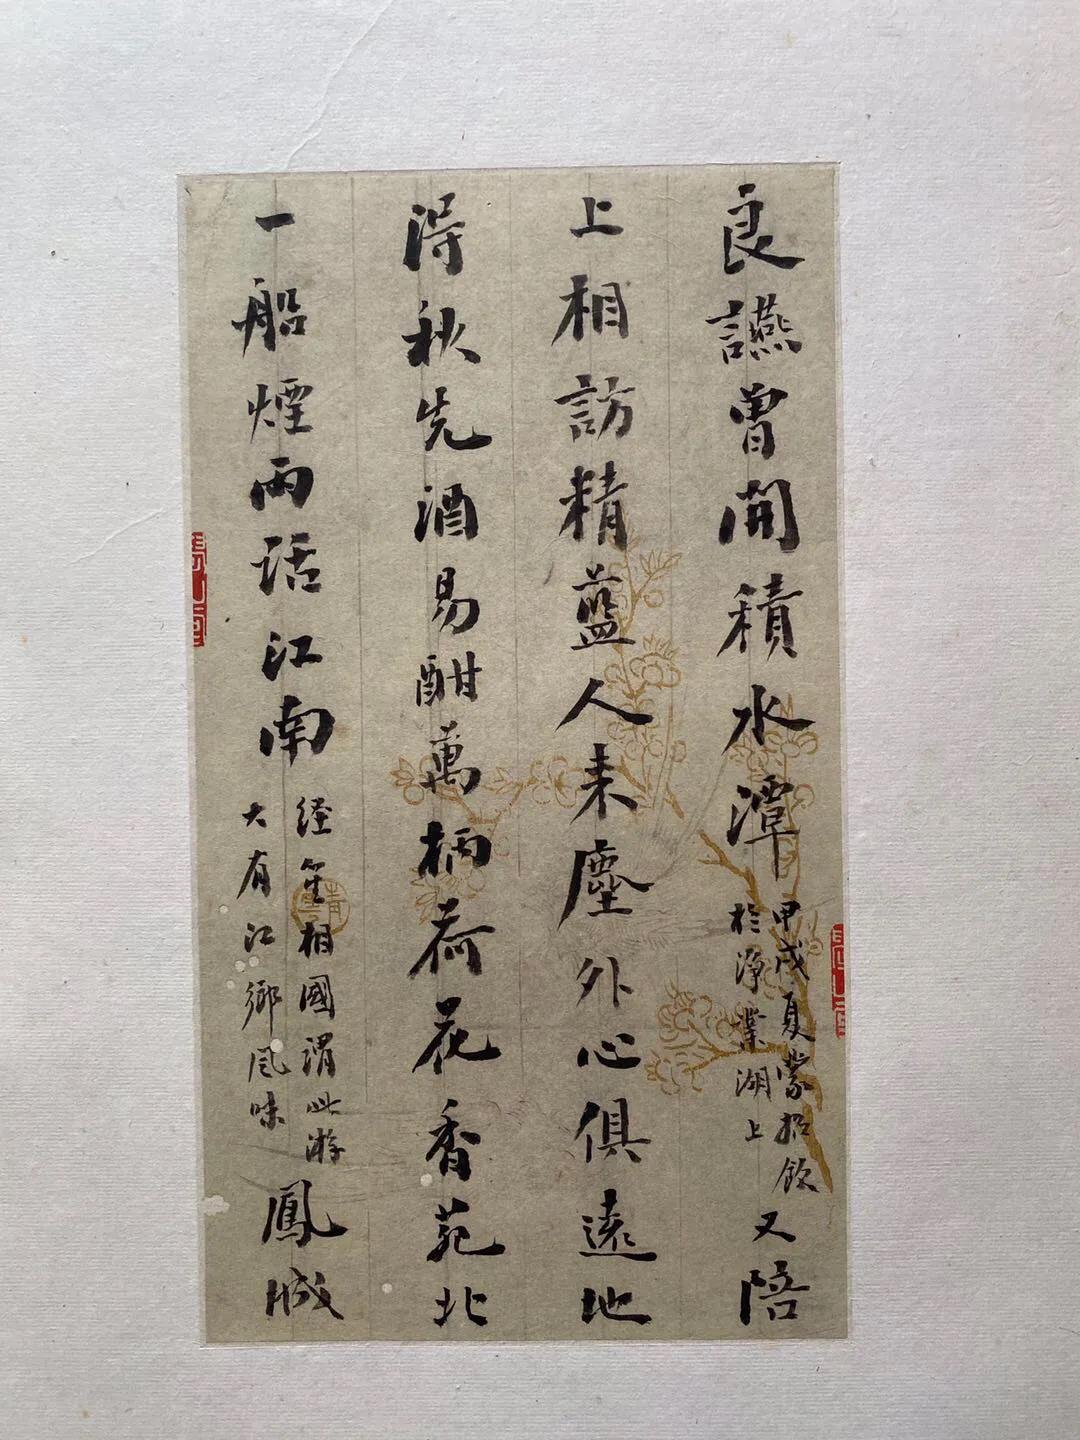 良讌曾開積水潭甲戌夏蒙招飲於淨業湖上又陪
上相訪精藍人来塵外心俱遠地
得秋先酒易酣萬柄荷花香苑北
一船煙雨話江南経笙相國謂此游大有江鄉風味鳳城